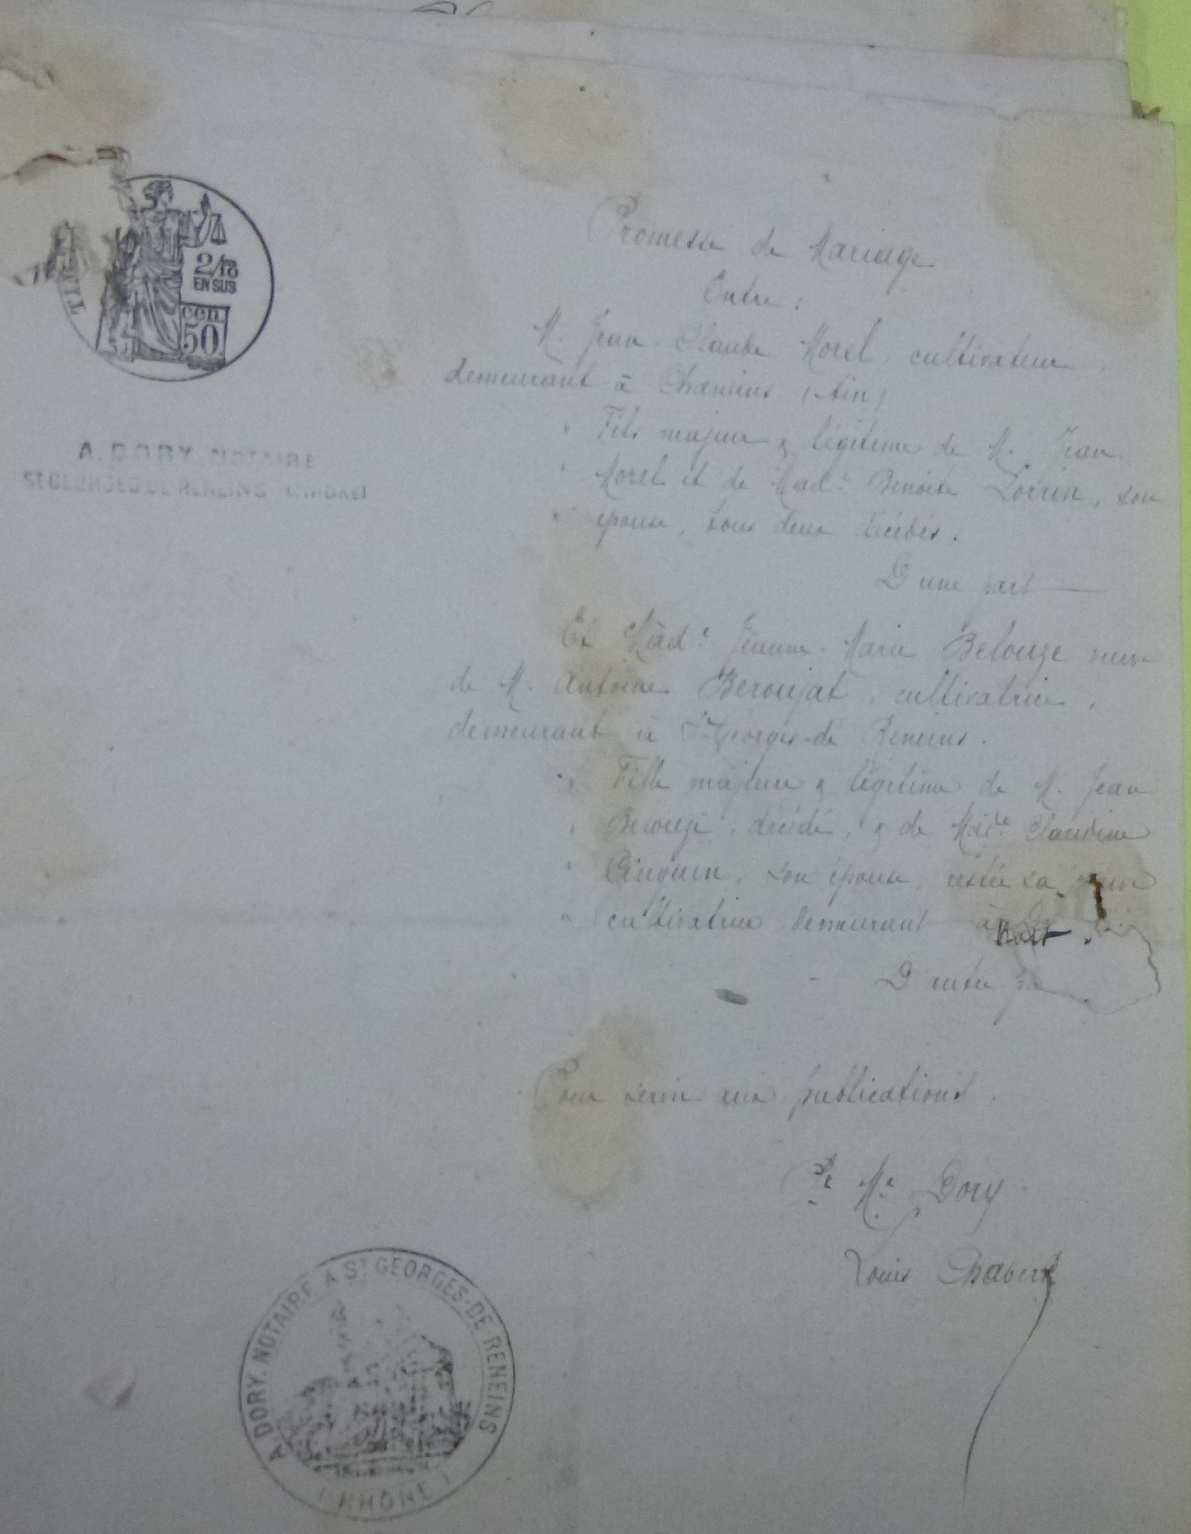 2/10
EN SUS
cen.
50
A. DORY. NOTAIRE
ST GEORGES DE RENEINS (RHÔNE)
Promesse de Mariage
Entre :
M. Jean-Claude Morel cultivateur
demeurant à (Ain)
" Fils majeur & légitime de M. Jean
" Morel et de Madᵉ Benoite son
" épouse, tous deux décédés.
D'une part
Et Madᵉ Jeanne-Marie Belouze veuve
de M. Antoine Beroujat, cultivatrice,
demeurant à Sᵗ Georges-de Reneins.
" Fille majeure & légitime de M. Jean
" Belouze, décédé, & de Madᵉ Claudine
" son épouse, restée sa veuve
" cultivatrice demeurant à
D'autre
Pour servir aux publications.
Pʳ Mᵉ Dory
Louis Chabert
A. DORY. NOTAIRE A ST GEORGES-DE RENEINS
(RHÔNE)